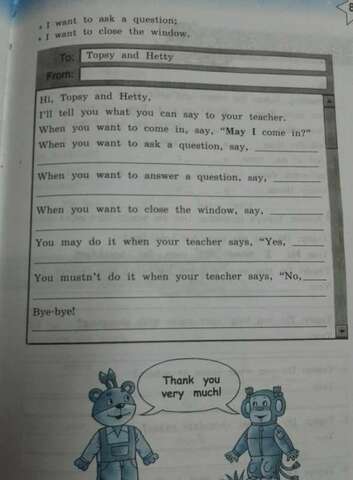 I want to ask a question;
I want to close the window.
To: Topsy and Hetty
From:
Hi, Topsy and Hetty,
I'll tell you what you can say to your teacher.
When you want to come in, say, "May I come in?"
When you want to ask a question, say,
When you want to answer a question, say,
When you want to close the window, say,
You may do it when your teacher says, "Yes,
You mustn't do it when your teacher says, "No,
Bye-bye!
Thank you
very much!